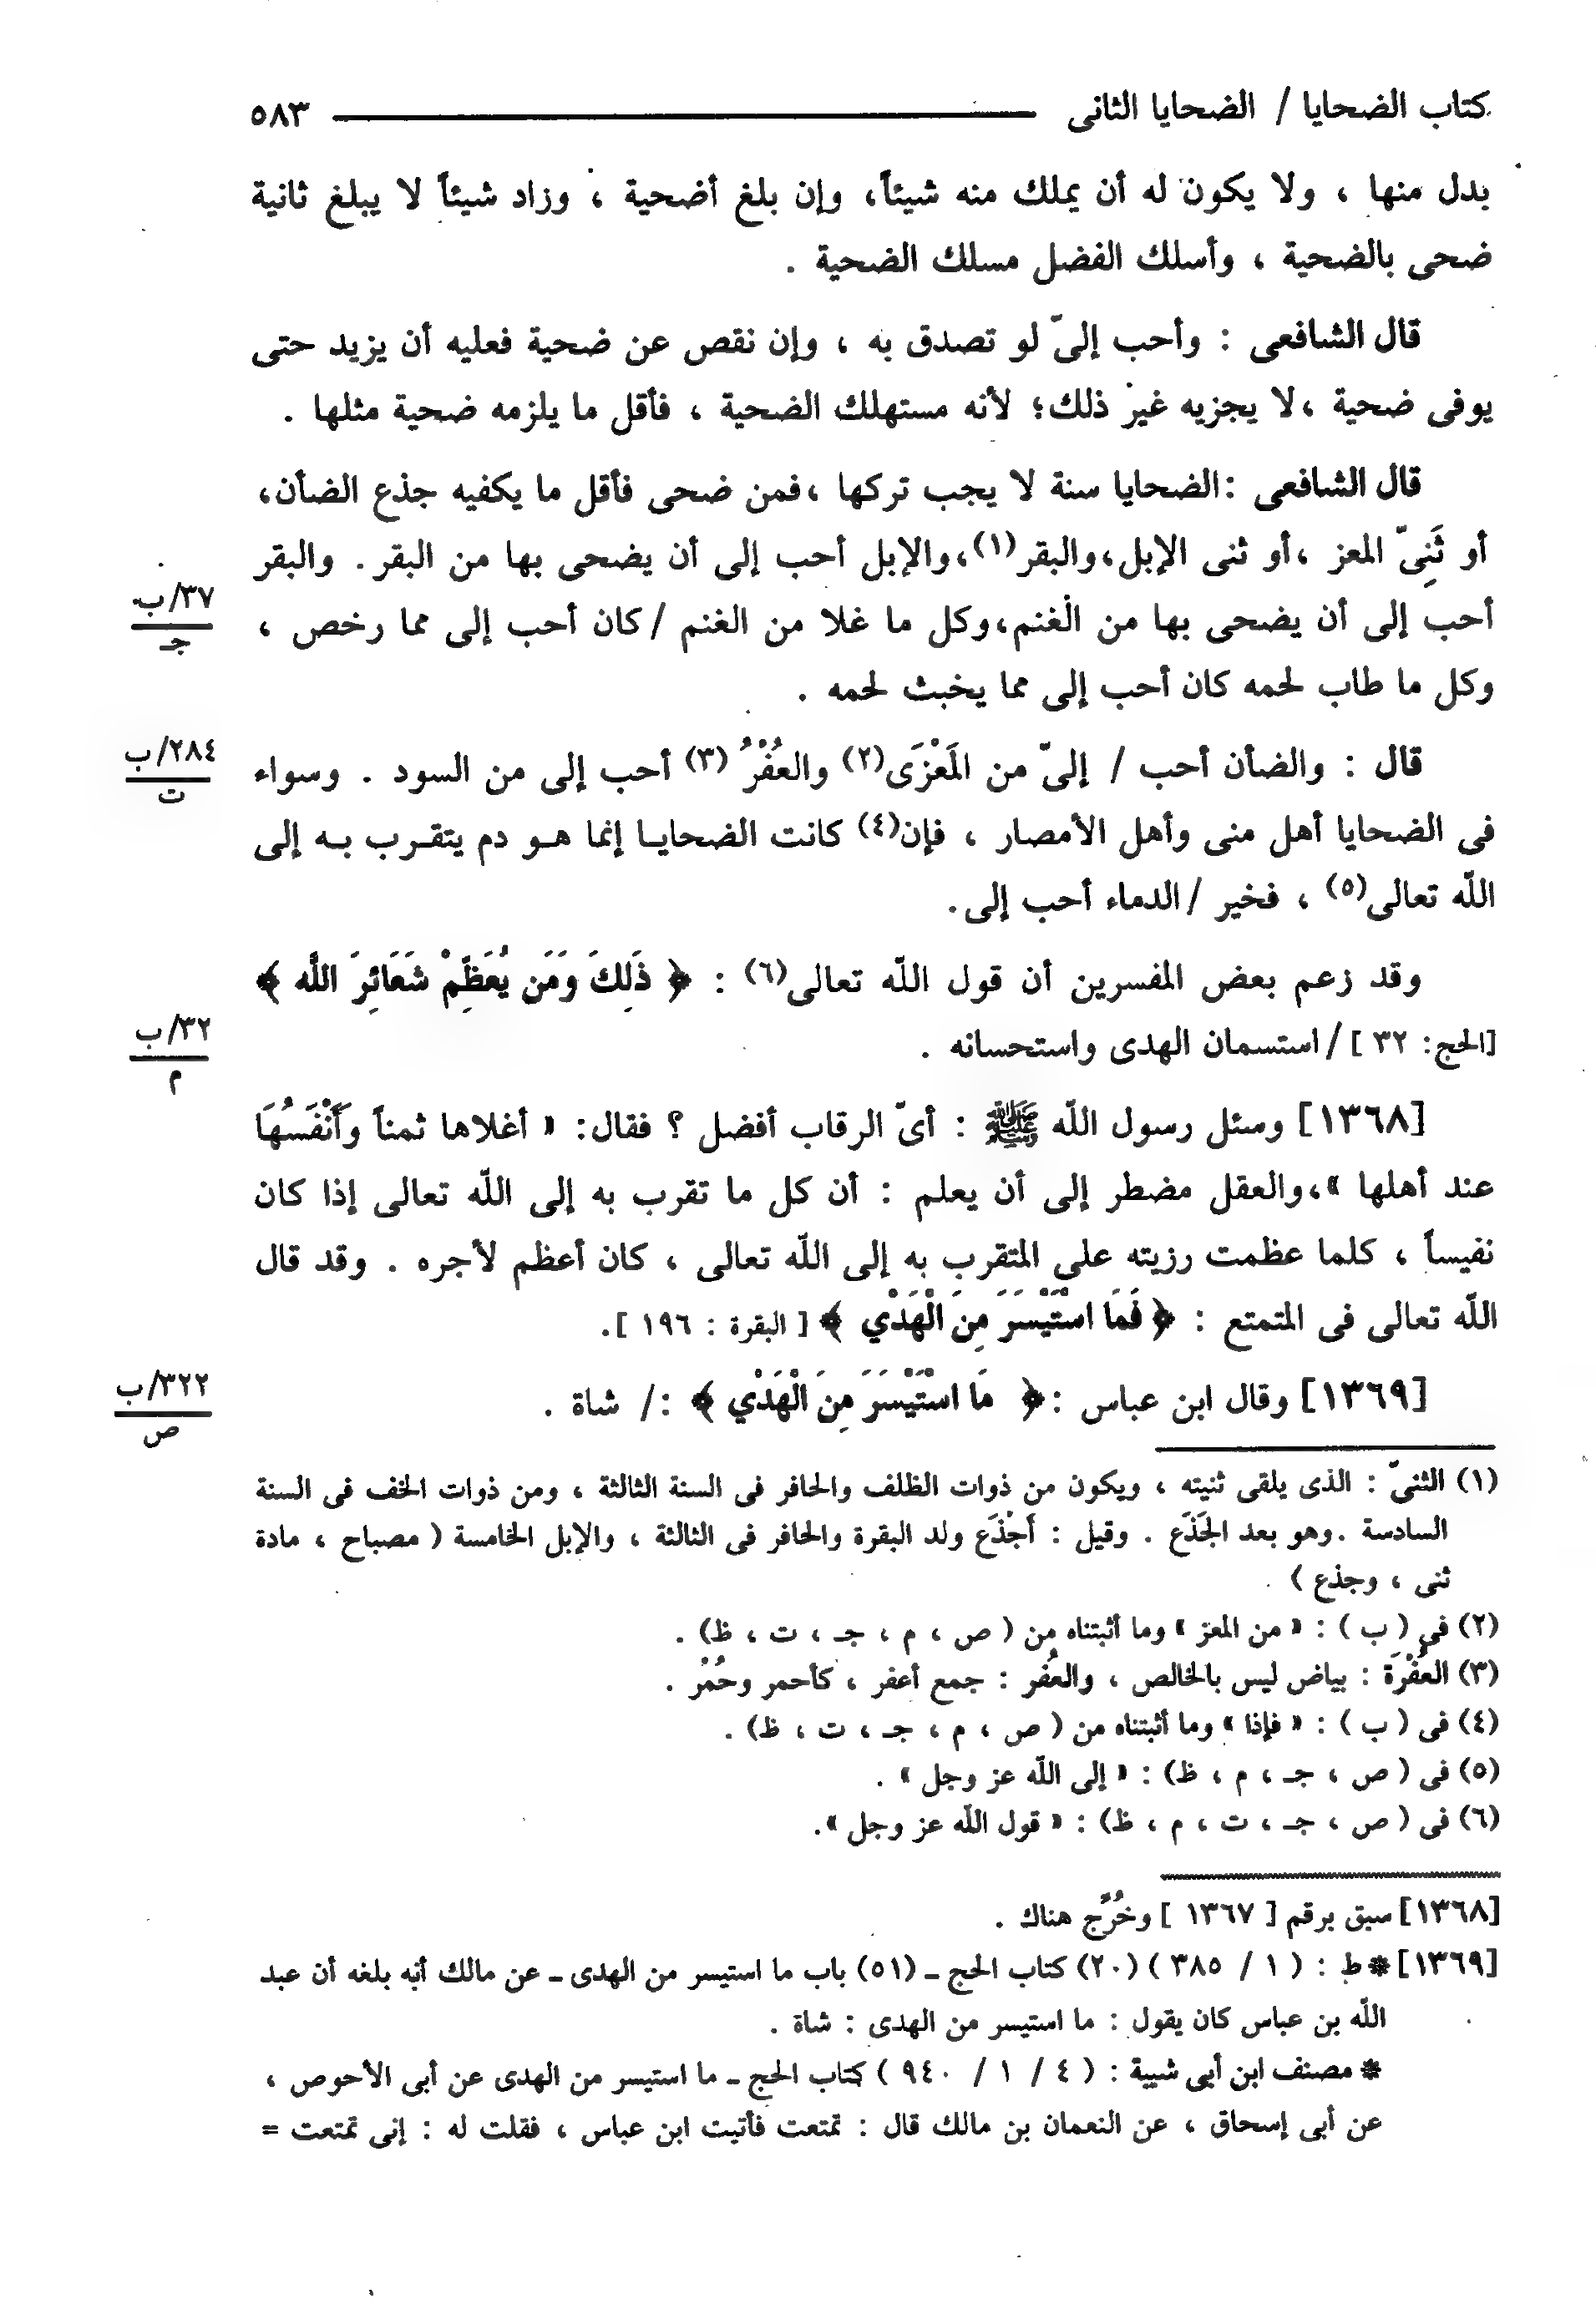 كتاب الضحايا / الضحايا الثانى ٥٨٣
بدل منها ، ولا يكون له أن يملك منه شيئاً، وإن بلغ أضحية ، وزاد شيئاً لا يبلغ ثانية
ضحى بالضحية ، وأسلك الفضل مسلك الضحية .
قال الشافعى : وأحب إلىّ لو تصدق به ، وإن نقص عن ضحية فعليه أن يزيد حتى
يوفى ضحية ،لا يجزيه غير ذلك؛ لأنه مستهلك الضحية ، فأقل ما يلزمه ضحية مثلها .
قال الشافعى :الضحايا سنة لا يجب تركها ،فمن ضحى فأقل ما يكفيه جذع الضأن،
أو ثَنِىّ المعز ،أو ثنى الإبل،والبقر(١)،والإبل أحب إلى أن يضحى بها من البقر. والبقر
أحب إلى أن يضحى بها من الغنم،وكل ما غلا من الغنم /كان أحب إلى مما رخص ،
٣٧/ب
جـ
وكل ما طاب لحمه كان أحب إلى مما يخبث لحمه .
قال : والضأن أحب / إلىّ من المَعْزَى(٢) والعُفْرُ (٣) أحب إلى من السود . وسواء
٢٨٤/ب
ت
فى الضحايا أهل منى وأهل الأمصار ، فإن(٤) كانت الضحايـا إنما هـو دم يتقـرب بـه إلى
اللّه تعالى(٥) ، فخير /الدماء أحب إلى.
وقد زعم بعض المفسرين أن قول اللّه تعالى(٦) : ﴿ ذَلِكَ وَمَن يُعَظِّمْ شَعَائِرَ اللَّه ﴾
[الحج: ٣٢ ] /استسمان الهدى واستحسانه .
٣٢/ب
م
[١٣٦٨] وسئل رسول اللّه ﷺ : أىّ الرقاب أفضل ؟ فقال: « أغلاها ثمناً وَأَنْفَسُهَا
عند أهلها »،والعقل مضطر إلى أن يعلم : أن كل ما تقرب به إلى اللّه تعالى إذا كان
نفيساً ، كلما عظمت رزيته على المتقرب به إلى اللّه تعالى ، كان أعظم لأجره . وقد قال
اللّه تعالى فى المتمتع : ﴿ فَمَا اسْتَيْسَرَ مِنَ الْهَدْيِ ﴾ [ البقرة : ١٩٦ ].
[١٣٦٩] وقال ابن عباس :﴿ مَا اسْتَيْسَرَ مِنَ الْهَدْيِ ﴾ :/ شاة .
٣٢٢/ب
ص
(١) الثنىّ : الذى يلقى ثنيته ، ويكون من ذوات الظلف والحافر فى السنة الثالثة ، ومن ذوات الخف فى السنة
السادسة .وهو بعد الجَذَع . وقيل : أَجْذَع ولد البقرة والحافر فى الثالثة ، والإبل الخامسة ( مصباح ، مادة
ثنى ، وجذع )
(٢) فى ( ب ) : « من المعز » وما أثبتناه من ( ص ، م ، جـ ، ت ، ظ) .
(٣) العُفْرَة : بياض ليس بالخالص ، والعُفر : جمع أعفر ، كأحمر وحُمْر .
(٤) فى ( ب ) : « فإذا » وما أثبتناه من ( ص ، م ، جـ ، ت ، ظ) .
(٥) فى ( ص ، جـ ، م ، ظ) : « إلى اللّه عز وجل » .
(٦) فى ( ص ، جـ ، ت ، م ، ظ) : « قول اللّه عز وجل ».
[١٣٦٨] سبق برقم [ ١٣٦٧ ] وخُرِّج هناك .
[١٣٦٩] * ط : ( ١ / ٣٨٥ ) (٢٠) كتاب الحج ـ (٥١) باب ما استيسر من الهدى ـ عن مالك أنه بلغه أن عبد
اللّه بن عباس كان يقول : ما استيسر من الهدى : شاة .
* مصنف ابن أبى شيبة : ( ٤ / ١ / ٩٤٠ ) كتاب الحج ـ ما استيسر من الهدى عن أبى الأحوص ،
عن أبى إسحاق ، عن النعمان بن مالك قال : تمتعت فأتيت ابن عباس ، فقلت له : إنى تمتعت =